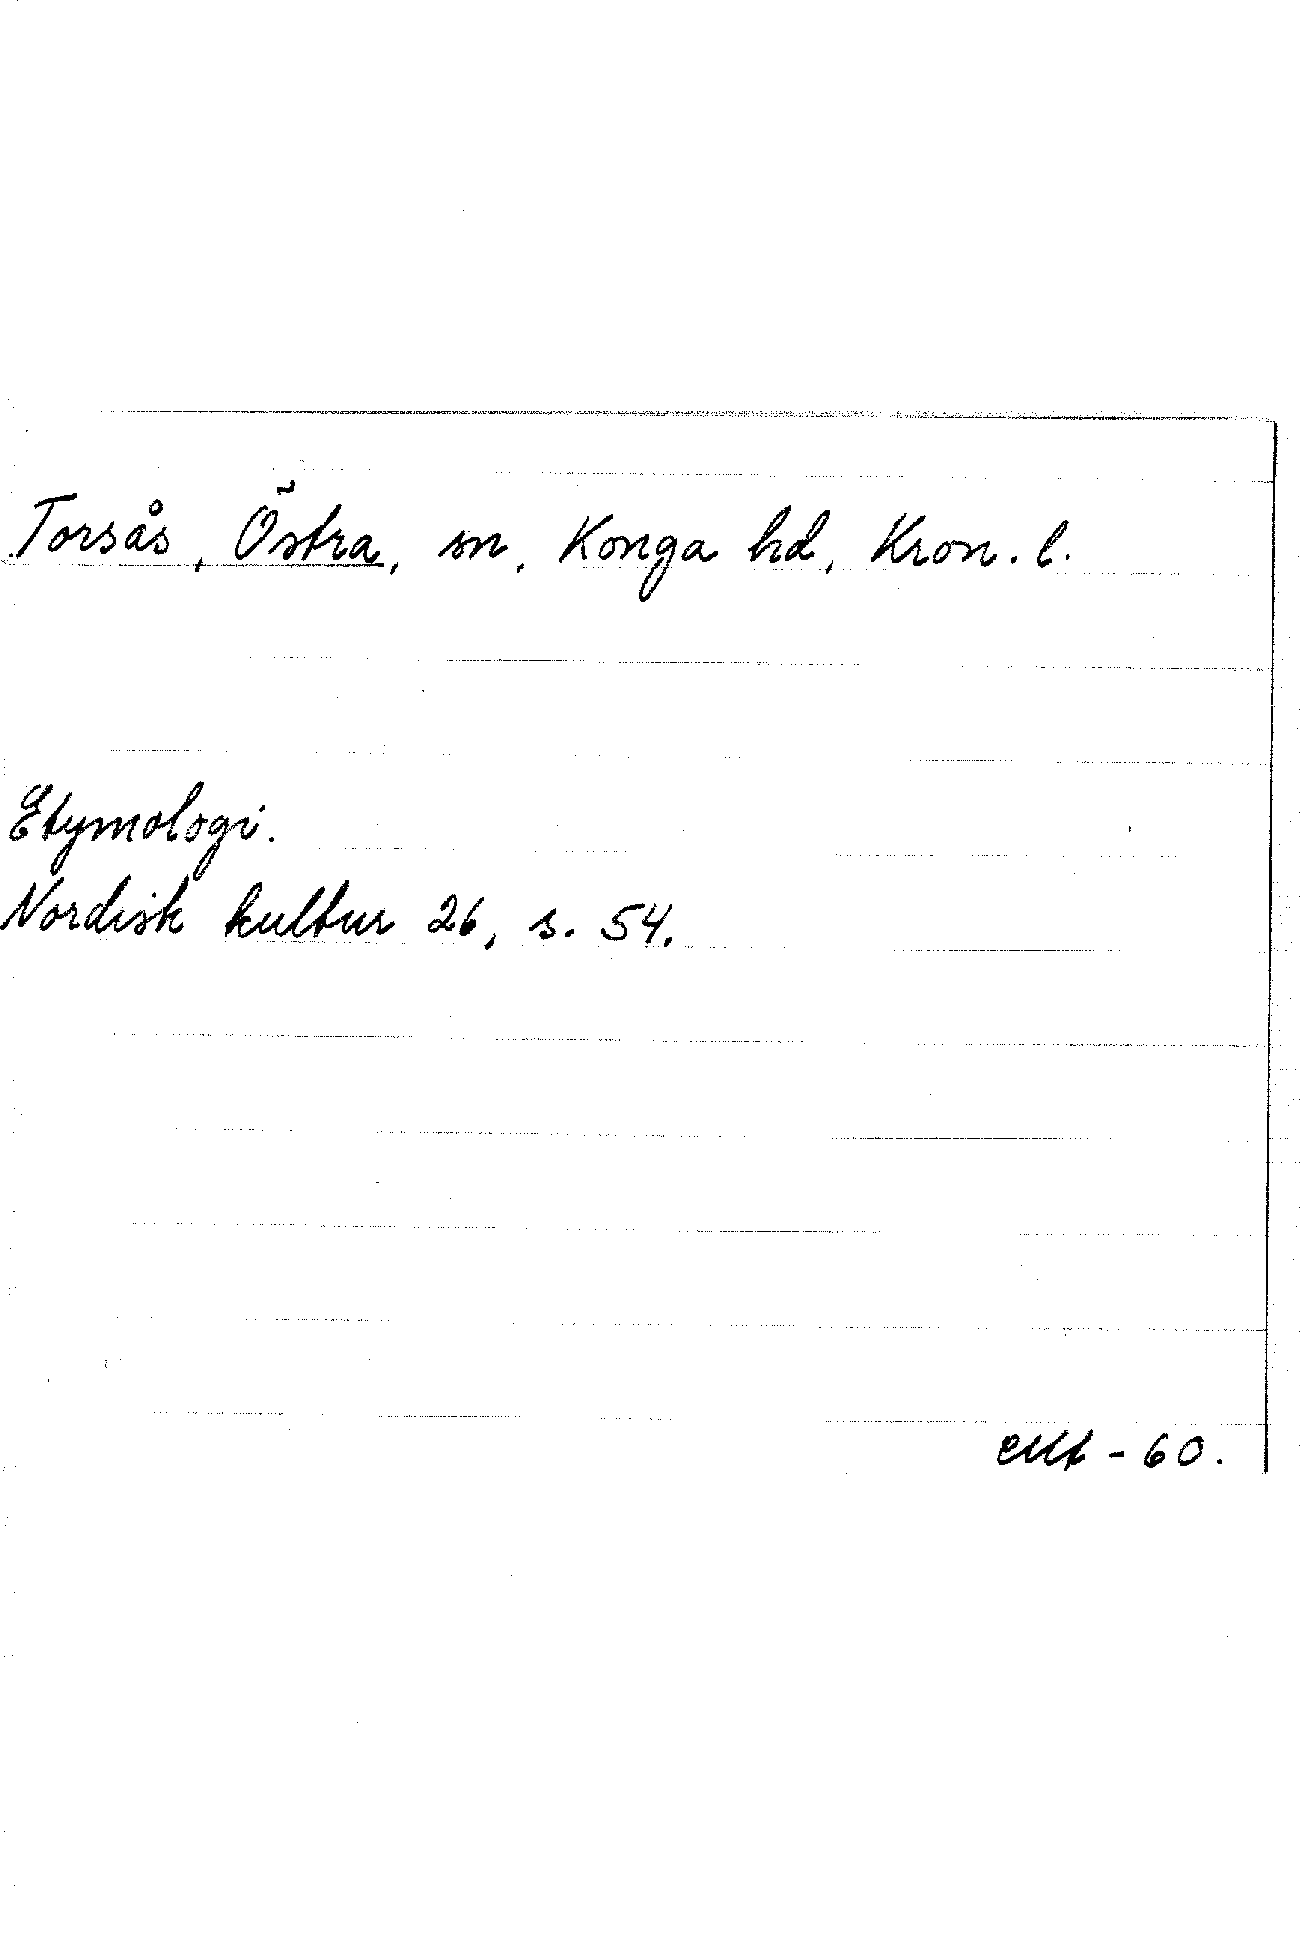 Torsås, Östra, sn, Konga hd, Kron. l.
Etymologi.
Nordisk kultur 26, s. 54.
- 60.